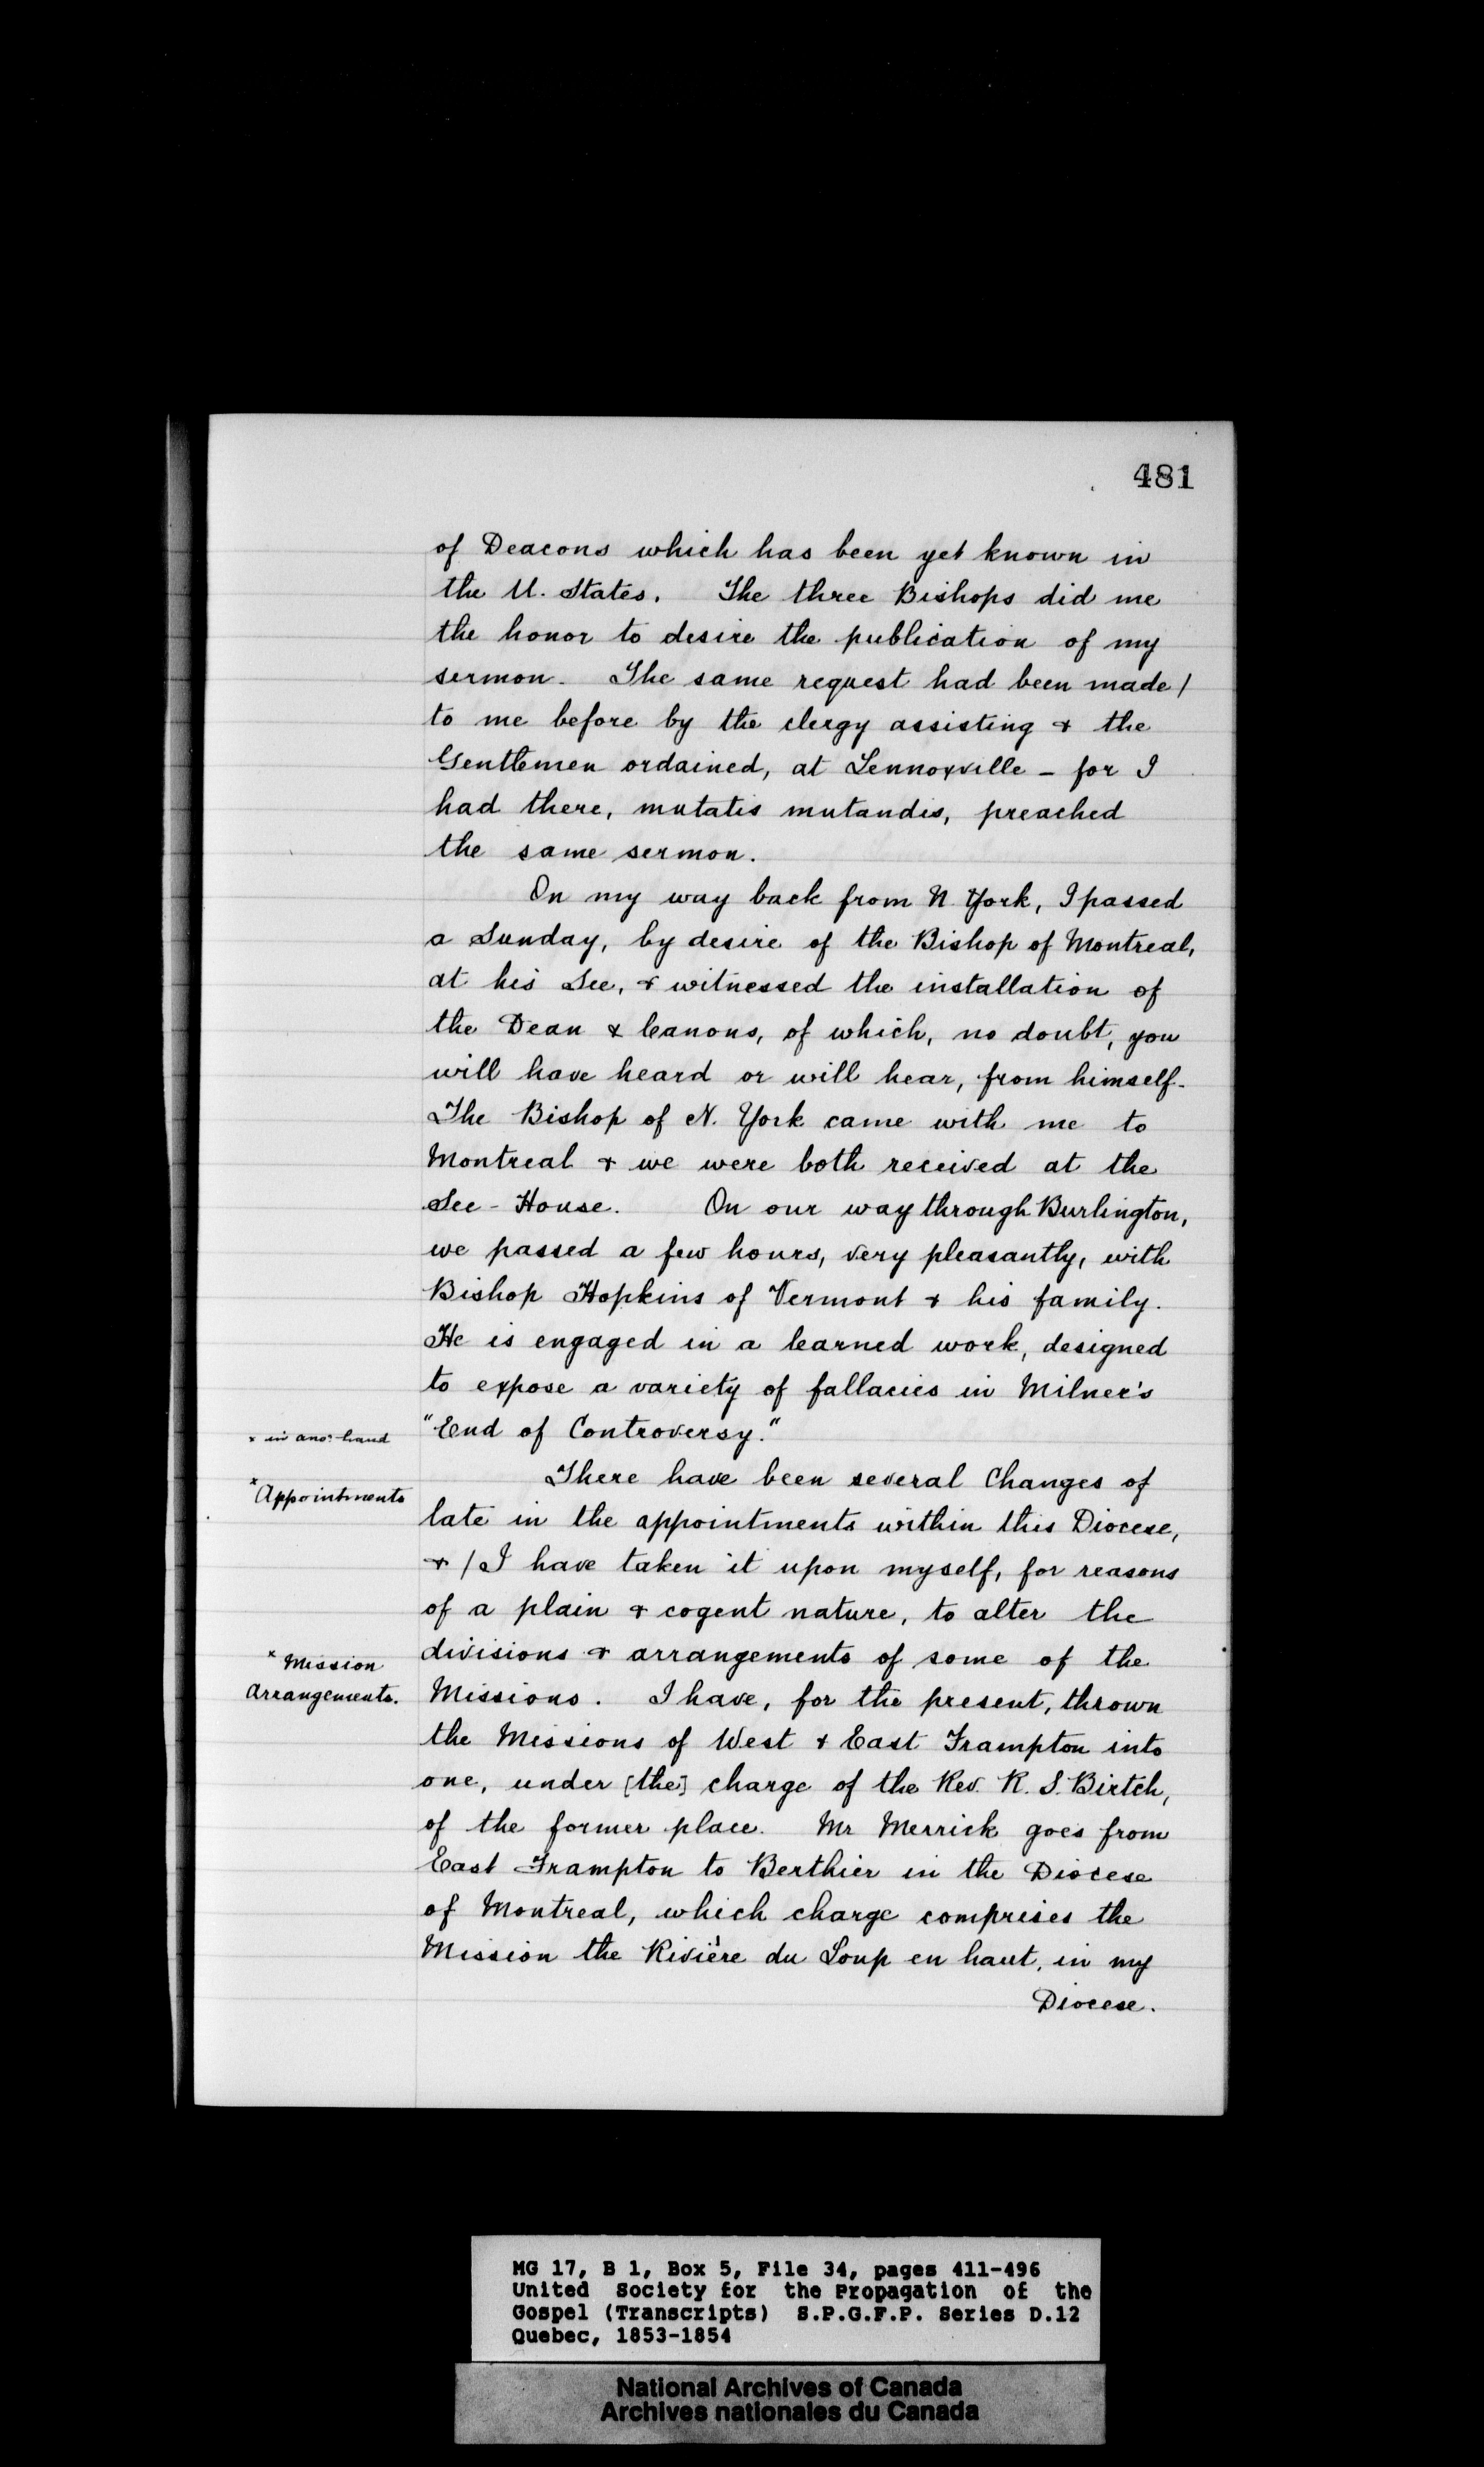 481
of Deacons which has been yet known in
the U. States. The three Bishops did me
the honor to desire the publication of my
sermon. The same request had been made /
to me before by the clergy assisting & the
Gentlemen ordained, at Lennoxville – for I
had there, mutatis mutandis, preached
the same sermon.
On my way back from N York, I passed
a Sunday, by desire of the Bishop of Montreal,
at his See, & witnessed the installation of
the Dean & Canons, of which, no doubt, you
will have heard or will hear, from himself.
The Bishop of N. York came with me to
Montreal & we were both received at the
See-House. On our way through Burlington,
we passed a few hours, very pleasantly, with
Bishop Hopkins of Vermont & his family.
He is engaged in a learned work, designed
to expose a variety of fallacies in Milner's
"End of Controversy."
x in anor. hand
There have been several Changes of
x Appointments
late in the appointments within this Diocese,
& / I have taken it upon myself, for reasons
of a plain & cogent nature, to alter the
divisions & arrangements of some of the
x Mission
arrangements.
Missions. I have, for the present, thrown
the Missions of West & East Frampton into
one, under [the] charge of the Rev. R. S. Birtch,
of the former place. Mr Merrick goes from
East Frampton to Berthier in the Diocese
of Montreal, which charge comprises the
Mission the Rivière du Loup en haut, in my
Diocese.
MG 17, B 1, Box 5, File 34, pages 411-496
United Society for the Propagation of the
Gospel (Transcripts) S.P.G.F.P. Series D.12
Quebec, 1853-1854
National Archives of Canada
Archives nationales du Canada